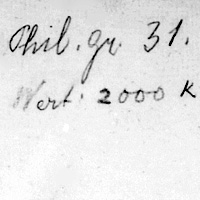 Phil. gr. 31.
Wert: 2000 K